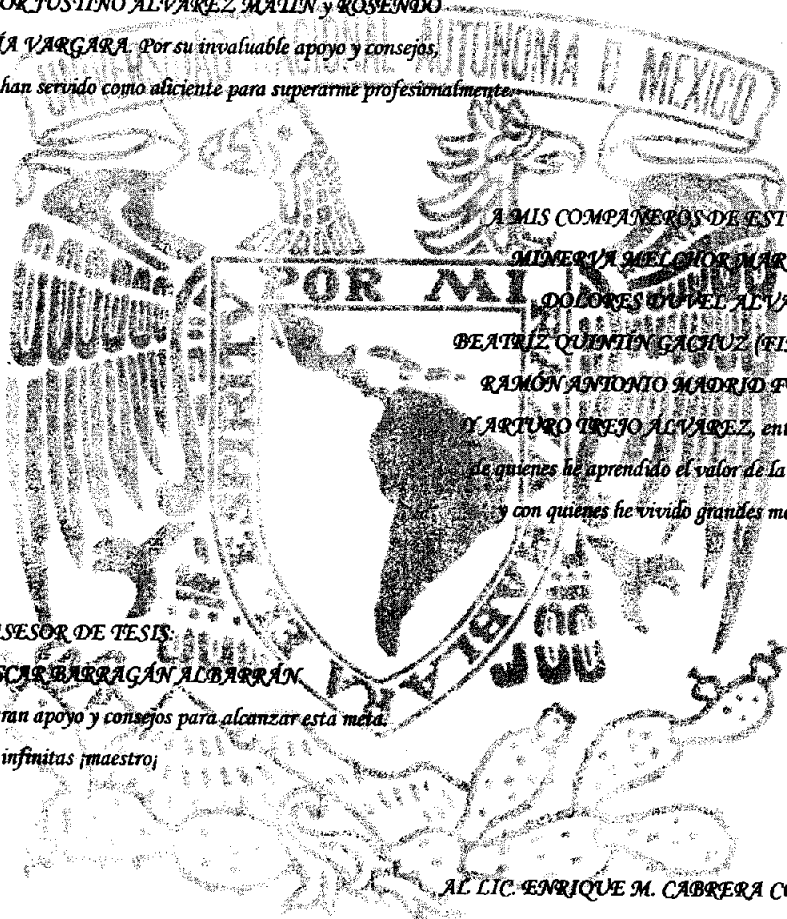 OR JUSTINO ALVAREZ MATIN y ROSENDO
ÍA VARGARA. Por su invaluable apoyo y consejos,
han servido como aliciente para superarme profesionalmente.
NACIONAL AUTÓNOMA D MEXICO
A MIS COMPAÑEROS DE EST
MINERVA MELCHOR MAR
POR MI
DOLORES DUVEL ALVA
BEATRIZ QUINTIN GACHUZ (FIS
RAMÓN ANTONIO MADRID F
Y ARTURO TREJO ÁLVAREZ, ent
de quienes he aprendido el valor de la
y con quienes he vivido grandes m
HABLARA
SESOR DE TESIS:
SCAR BARRAGÁN ALBARRÁN.
ran apoyo y consejos para alcanzar esta meta.
infinitas ¡maestro¡
AL LIC. ENRIQUE M. CABRERA CO